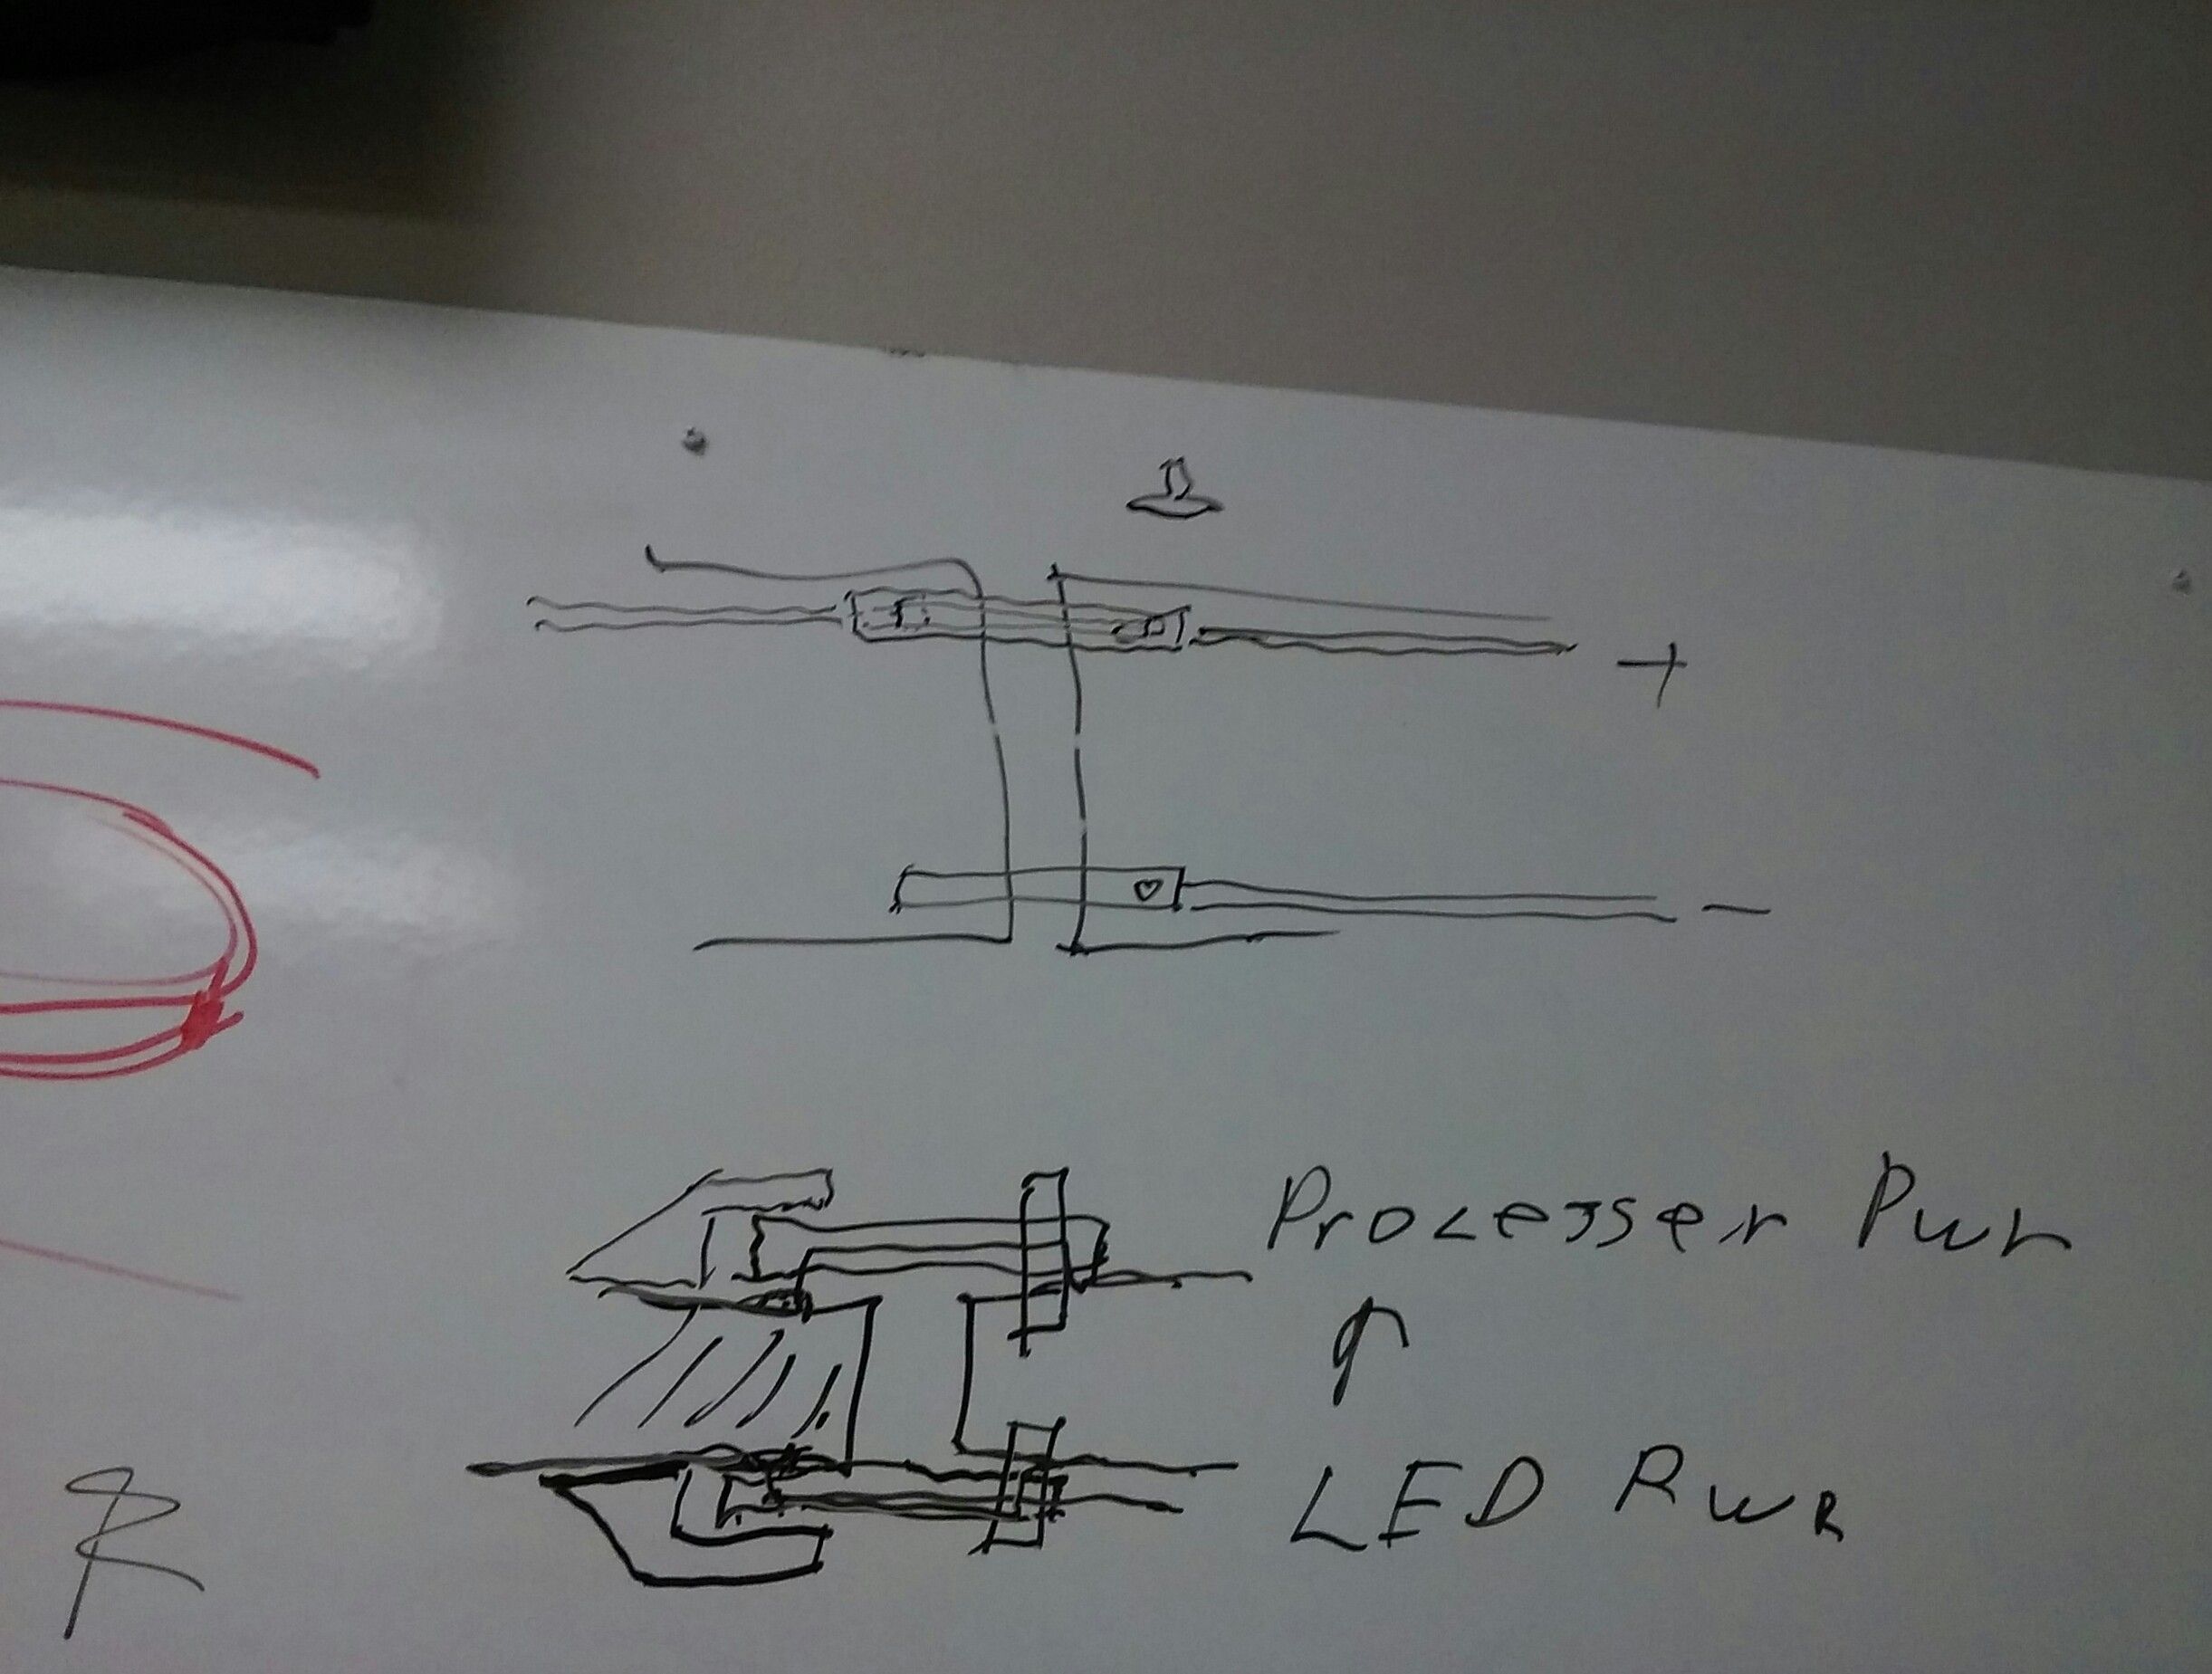 +
-
Processer Pwr
LED PWR